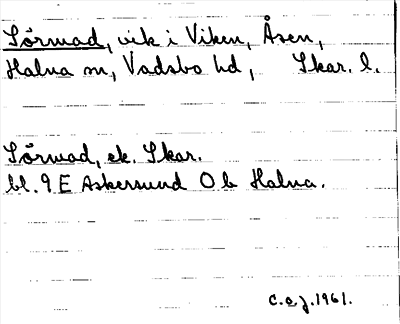 Sörwad, vik i Viken, Åsen,
Halna sn, Vadsbo hd, Skar. l.
Sörwad, ek. Skar.
bl. 9 E Askersund O b Halna.
C.a.J. 1961.